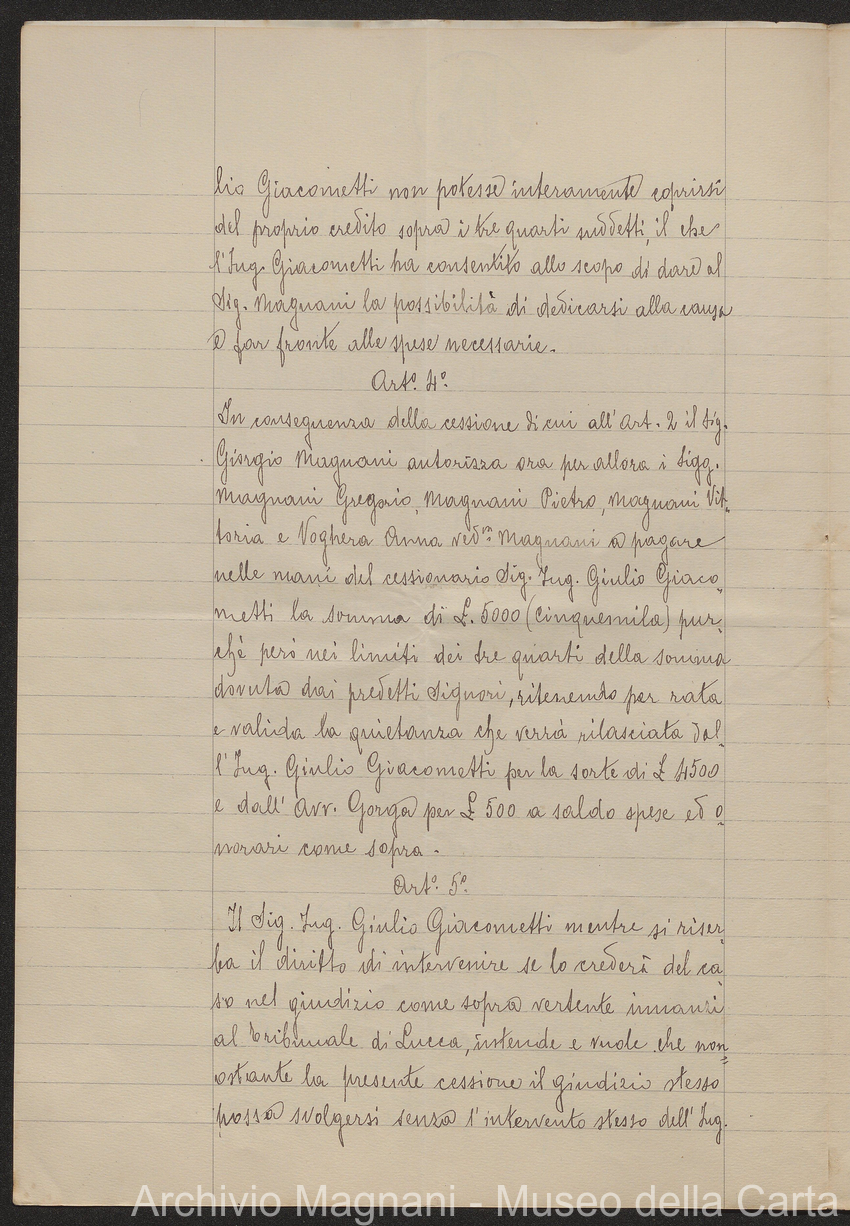 lio Giacometti non potesse interamente coprirsi
del proprio credito sopra i tre quarti suddetti, il che
l'Ing. Giacometti ha consentito allo scopo di dare al
Sig. Magnani la possibilità di dedicarsi alla causa
e far fronte alle spese necessarie.
Artº. 4º.
In conseguenza della cessione di cui all'Art. 2 il Sig.
Giorgio Magnani autorizza ora per allora i Sigg.
Magnani Gregorio, Magnani Pietro, Magnani Vit-
toria e Voghera Anna vedᵛᵃ Magnani a pagare
nelle mani del cessionario Sig. Ing. Giulio Giaco-
metti la somma di £. 5000 (cinquemila) pur-
chè però nei limiti dei tre quarti della somma
dovuta dai predetti Signori, ritenendo per rata
e valida la quietanza che verrà rilasciata dal-
l'Ing. Giulio Giacometti per la sorte di £ 4500
e dall'Avv. Gorga per £ 500 a saldo spese ed o-
norari come sopra.
Artº. 5º.
Il Sig. Ing. Giulio Giacometti mentre si riser-
ba il diritto di intervenire se lo crederà del ca-
so nel giudizio come sopra vertente innanzi
al Tribunale di Lucca, intende e vuole che non-
ostante la presente cessione il giudizio stesso
possa svolgersi senza l'intervento stesso dell'Ing.
Archivio Magnani - Museo della Carta